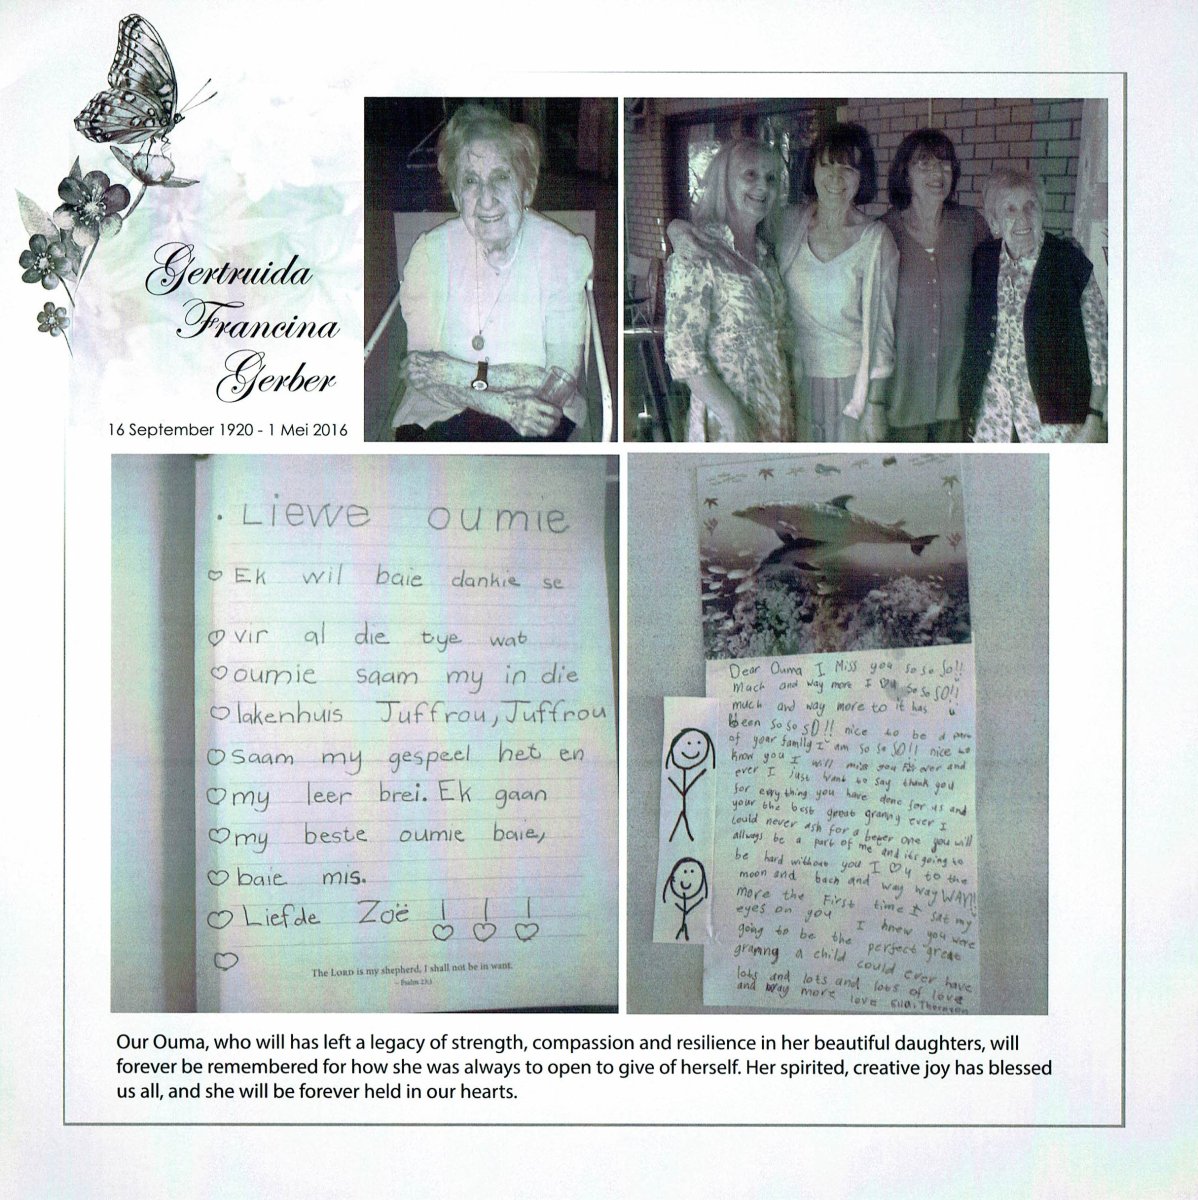 Gertruida
Francina
Gerber
16 September 1920 - 1 Mei 2016
. Liewe oumie
Ek wil baie dankie se
vir al die tye wat
oumie saam my in die
lakenhuis Juffrou, Juffrou
saam my gespeel het en
my leer brei. Ek gaan
my beste oumie baie,
baie mis.
Liefde Zoë ! ! !
The LORD is my shepherd, I shall not be in want.
~ Psalm 23:1
Dear Ouma I Miss you so so So!!
Mach and way more I ♡ u so So SO!!
much and way more to it has
been so so SO!! nice to be a part
of your family I am so so SO!! nice to
know you I will miss you for ever and
ever I just want to say thank you
for evrything you have done for us and
your the best great granny ever I
could never ask for a beter one you will
allways be a part of me and its going to
be hard without you I ♡ u to the
moon and bach and way way WAY!!
more the first time I sat my
eyes on you I knew you were
going to be the perfect great
granny a child could ever have
lots and lots and lots of love
and way more love
Our Ouma, who will has left a legacy of strength, compassion and resilience in her beautiful daughters, will
forever be remembered for how she was always to open to give of herself. Her spirited, creative joy has blessed
us all, and she will be forever held in our hearts.